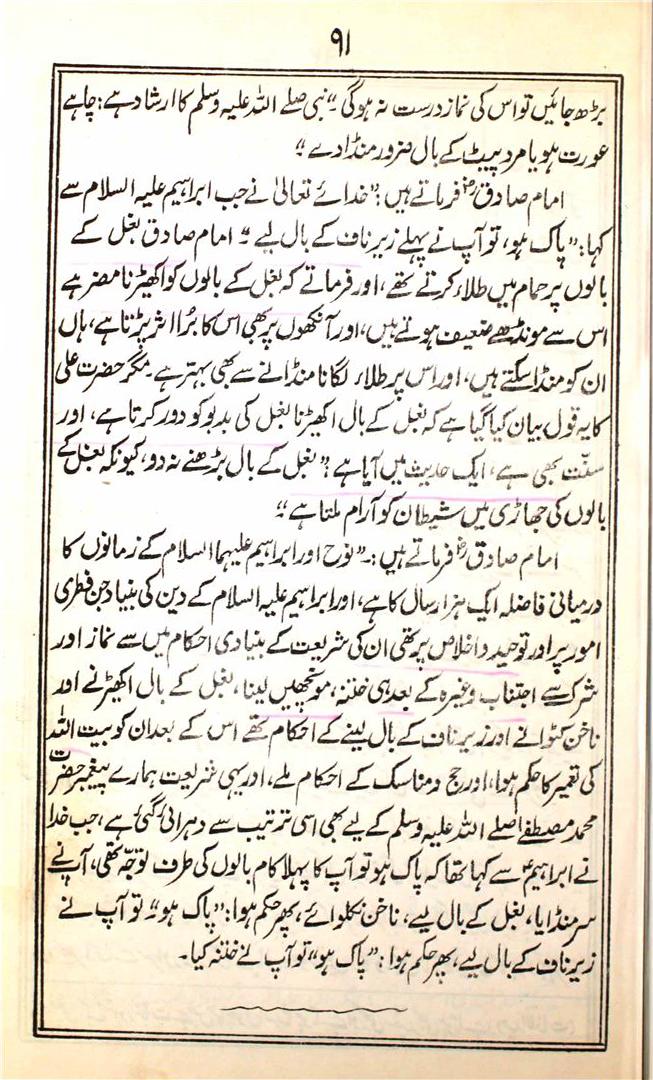 ۹۱
بڑھ جائیں تو اس کی نماز درست نہ ہوگی۔“ نبی صلے اللہ علیہ وسلم کا ارشاد ہے: چاہے
عورت ہو یا مرد پیٹ کے بال ضرور منڈا دے“
امام صادقؓ فرماتے ہیں: ”خدائے تعالیٰ نے جب ابراہیم علیہ السلام سے
کہا: ”پاک ہو، تو آپ نے پہلے زیر ناف کے بال لیے“۔ امام صادق بغل کے
بالوں پر حمام میں طلاء کرتے تھے، اور فرماتے کہ بغل کے بالوں کو اکھیڑنا مضر ہے
اس سے مونڈھے ضعیف ہوتے ہیں، اور آنکھوں پر بھی اس کا بُرا اثر پڑتا ہے، ہاں
ان کو منڈا سکتے ہیں، اور اس پر طلاء لگانا منڈانے سے بھی بہتر ہے۔ مگر حضرت علی
کا یہ قول بیان کیا گیا ہے کہ بغل کے بال اکھیڑنا بغل کی بدبو کو دور کرتا ہے، اور
سنّت بھی ہے، ایک حدیث میں آیا ہے: ”بغل کے بال بڑھنے نہ دو، کیونکہ بغل کے
بالوں کی جھاڑی میں شیطان کو آرام ملتا ہے“
امام صادقؓ فرماتے ہیں:۔ ”نوح اور ابراہیم علیہما السلام کے زمانوں کا
درمیانی فاصلہ ایک ہزار سال کا ہے، اور ابراہیم علیہ السلام کے دین کی بنیاد جن فطری
امور پر اور توحید و اخلاص پر تھی ان کی شریعت کے بنیادی احکام میں سے نماز اور
شرک سے اجتناب وغیرہ کے بعد ہی ختنہ، مونچھیں لینا، بغل کے بال اکھیڑنے اور
ناخن کٹوانے اور زیر ناف کے بال لینے کے احکام تھے اس کے بعد ان کو بیت اللہ
کی تعمیر کا حکم ہوا، اور حج و مناسک کے احکام ملے، اور یہی شریعت ہمارے پیغمبر حضرت
محمد مصطفےٰ صلے اللہ علیہ وسلم کے لیے بھی اسی ترتیب سے دہرائی گئی ہے، جب خدا
نے ابراہیمؑ سے کہا تھا کہ پاک ہو تو آپ کا پہلا کام بالوں کی طرف توجّہ تھی، آپ نے
سر منڈایا، بغل کے بال لیے، ناخن نکلوائے، پھر حکم ہوا: ”پاک ہو“ تو آپ نے
زیر ناف کے بال لیے، پھر حکم ہوا: ”پاک ہو“ تو آپ نے ختنہ کیا۔